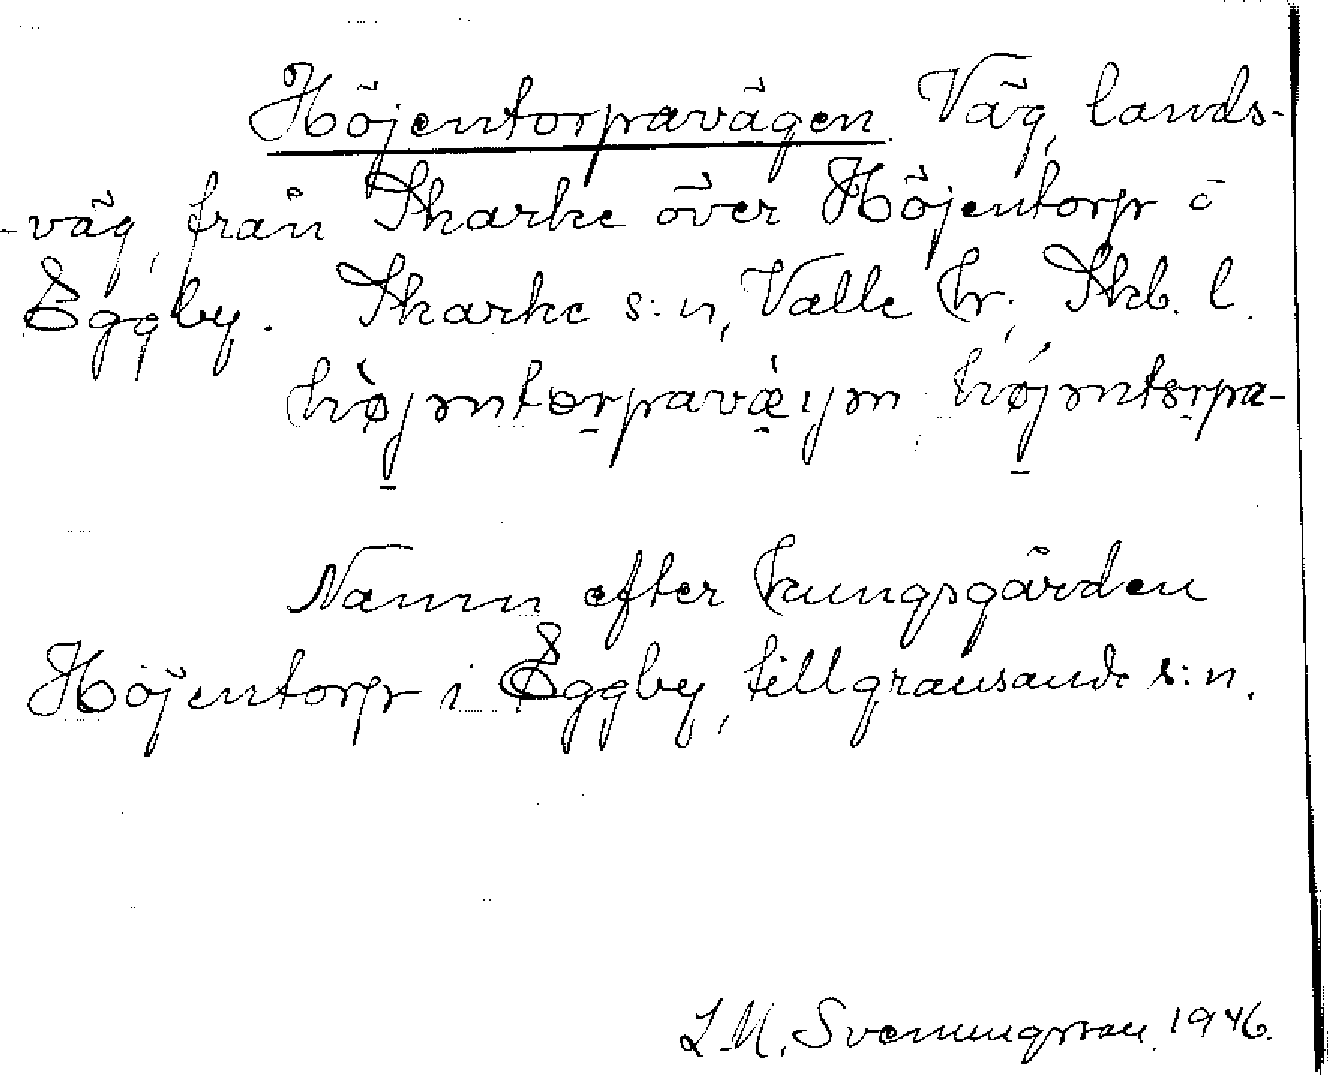 Höjentorpavägen. Väg, lands-
-väg, från Skarke över Höjentorp ö
Eggby. Skarke s:n, Valle hr; Skb. l.
Namn efter kungsgården
Höjentorp i Eggby, tillgränsande s:n.
L.M. Svenungsson 1946.